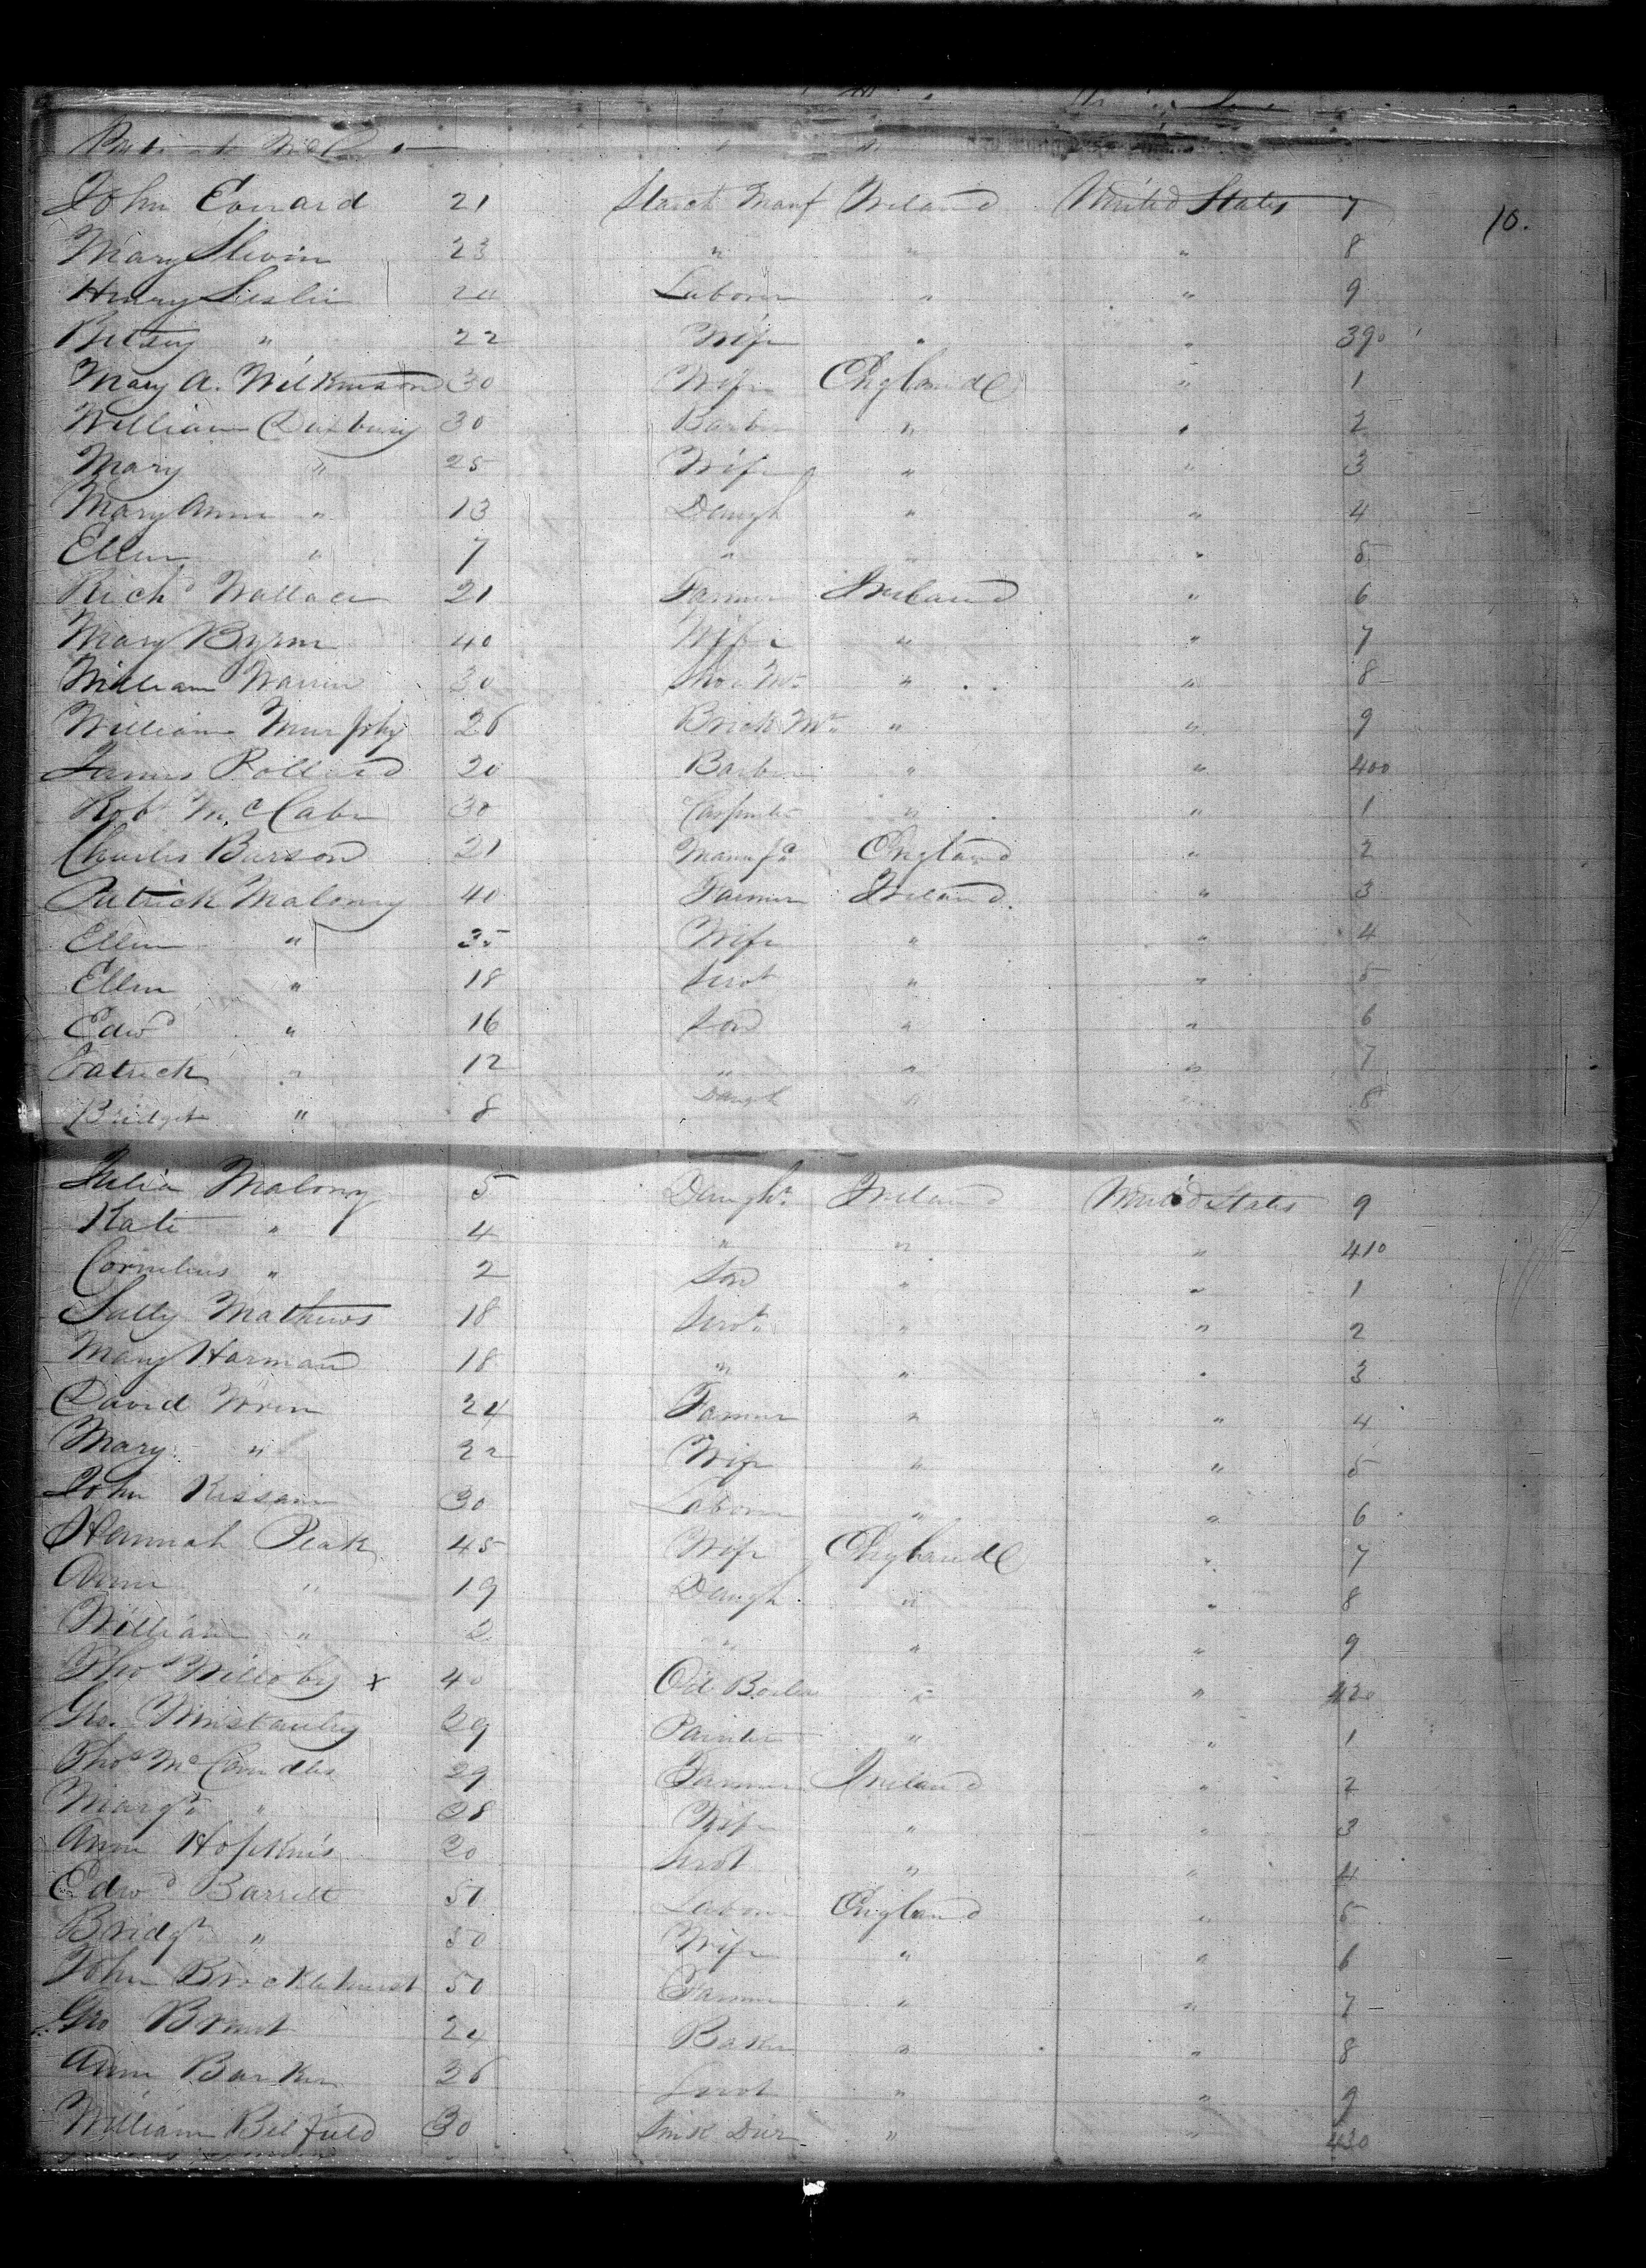 John Evrard 21 Starch Manf Ireland United States 7
10.
Mary Slevin 23 " " " 8
Henry Leslie 24 Laborer " " 9
Betsey " 22 Wife " " 390
Mary A. Wilkinson 30 Wife England " 1
William Duxbury 30 Barber " " 2
Mary " 25 Wife " " 3
Mary Ann " 13 Daugh " " 4
Ellen " 7 " " " 5
Richd Wallace 21 Farmer Ireland " 6
Mary Byrne 40 Wife " " 7
William Warren 30 Shoe Mr " " 8
William Murphy 26 Brick Mr " " 9
James Pollard 20 Barber " " 400
Robt McCabe 30 Carpenter " " 1
Charles Barson 21 Manufc England " 2
Patrick Malony 40 Farmer Ireland. " 3
Ellen " 35 Wife " " 4
Ellen " 18 Servt " " 5
Edwd " 16 Son " " 6
Patrick " 12 " " " 7
Bridget " 8 Daugh " " 8
Julia Malony 5 Daughr Ireland United States 9
Kate " 4 " " " 410
Cornelius " 2 Son " " 1
Sally Mathews 18 Servt " " 2
Mary Harman 18 " " " 3
David Wren 24 Farmer " " 4
Mary " 22 Wife " " 5
John Kissam 30 Laborer " " 6
Hannah Peak 45 Wife England " 7
Ann " 19 Daugh " " 8
William " 2 " " " 9
Thos Willoby x 40 Oil Boiler " " 420
Geo. Winstanley 39 Painter " " 1
Thos McCandles 29 Farmer Ireland " 2
Margt " 28 Wife " " 3
Anne Hopkins 20 Servt " " 4
Edwd Barrett 51 Laborer England " 5
Bridgt " 50 Wife " " 6
John Brocklehurst 50 Farmer " " 7
Geo Brunt 24 Baker " " 8
Ann Barker 26 Servt " " 9
William Belfield 30 Silk Dier " " 430